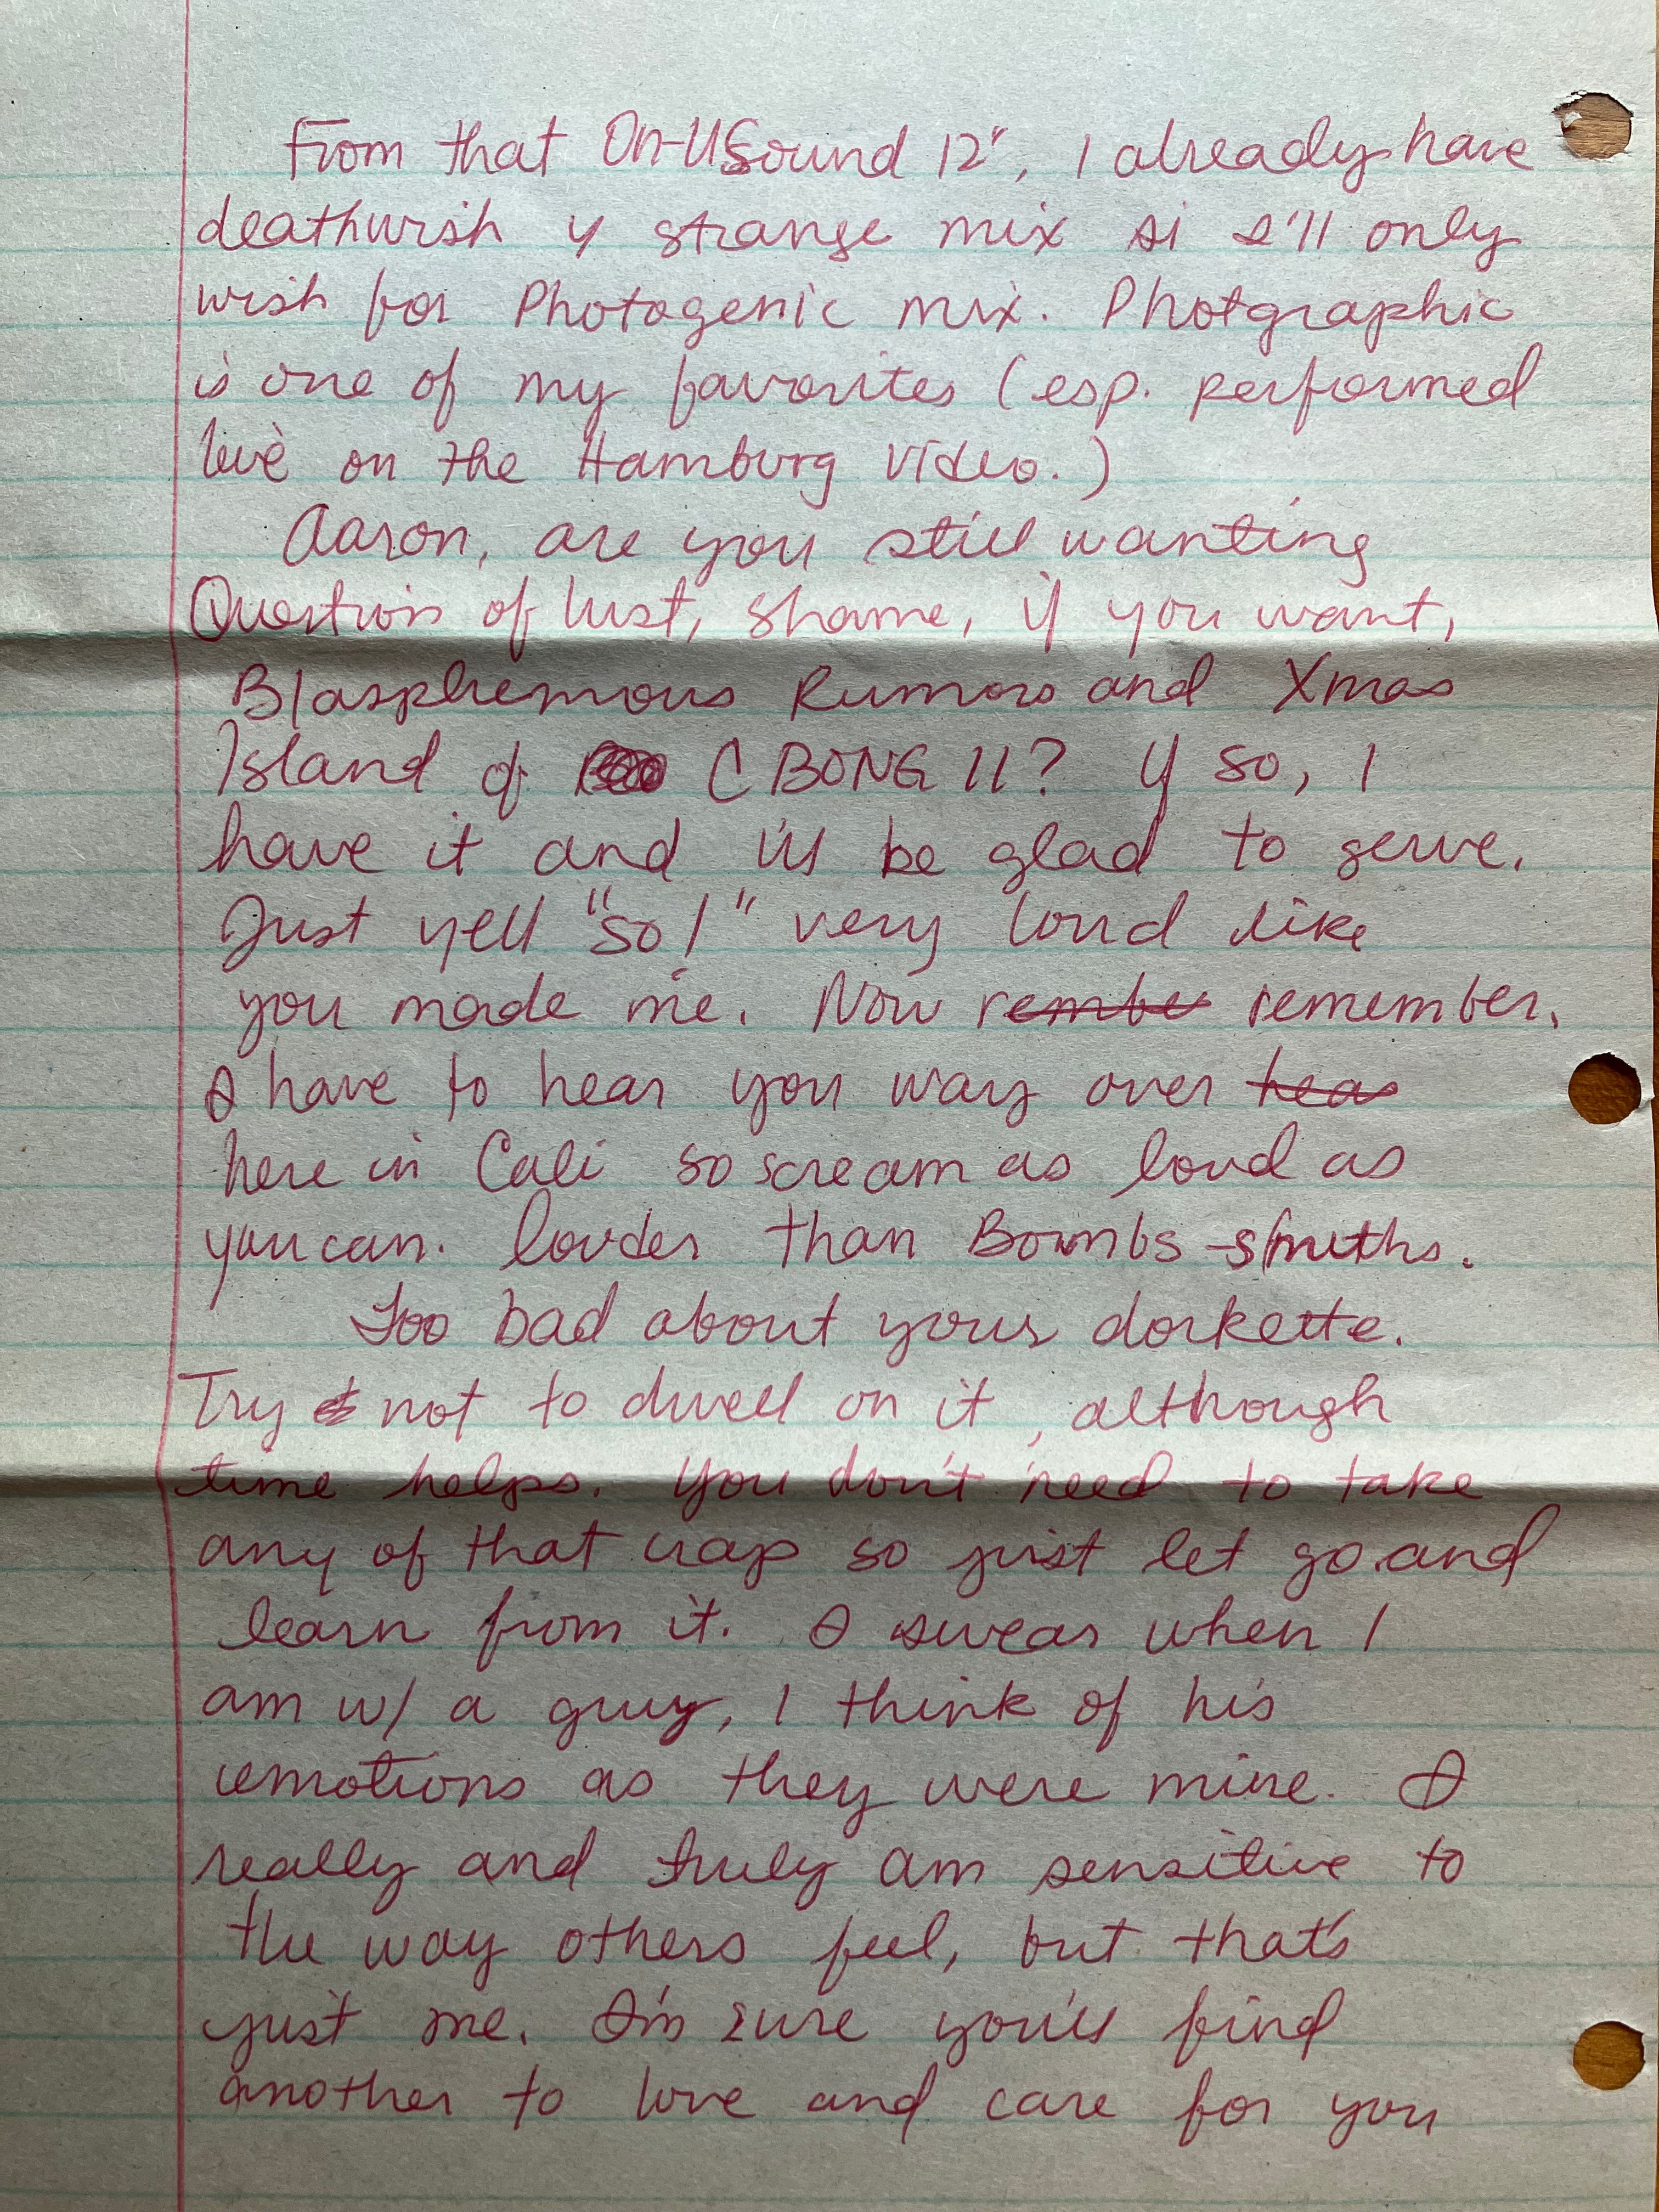 From that On-USound 12", I already have
deathwish & strange mix si I'll only
wish for Photogenic mix. Photgraphic
is one of my favorites (esp. performed
live on the Hamburg video.)
Aaron, are you still wanting
Question of lust, shame, if you want,
Blasphemous Rumors and Xmas
Island of C BONG 11? If so, I
have it and i'll be glad to serve.
Just yell "so!" very loud like
you made me. Now rembe remember.
I have to hear you way over hea
here in Cali so scream as loud as
you can. louder than Bombs - smiths.
Too bad about your dorkette.
Try not to dwell on it, although
time helps. You don't need to take
any of that crap so just let go and
learn from it. I swear when I
am w/ a guy, I think of his
emotions as they were mine. I
really and truly am sensitive to
the way others feel, but that's
just me. I'm sure you'll find
another to love and care for you